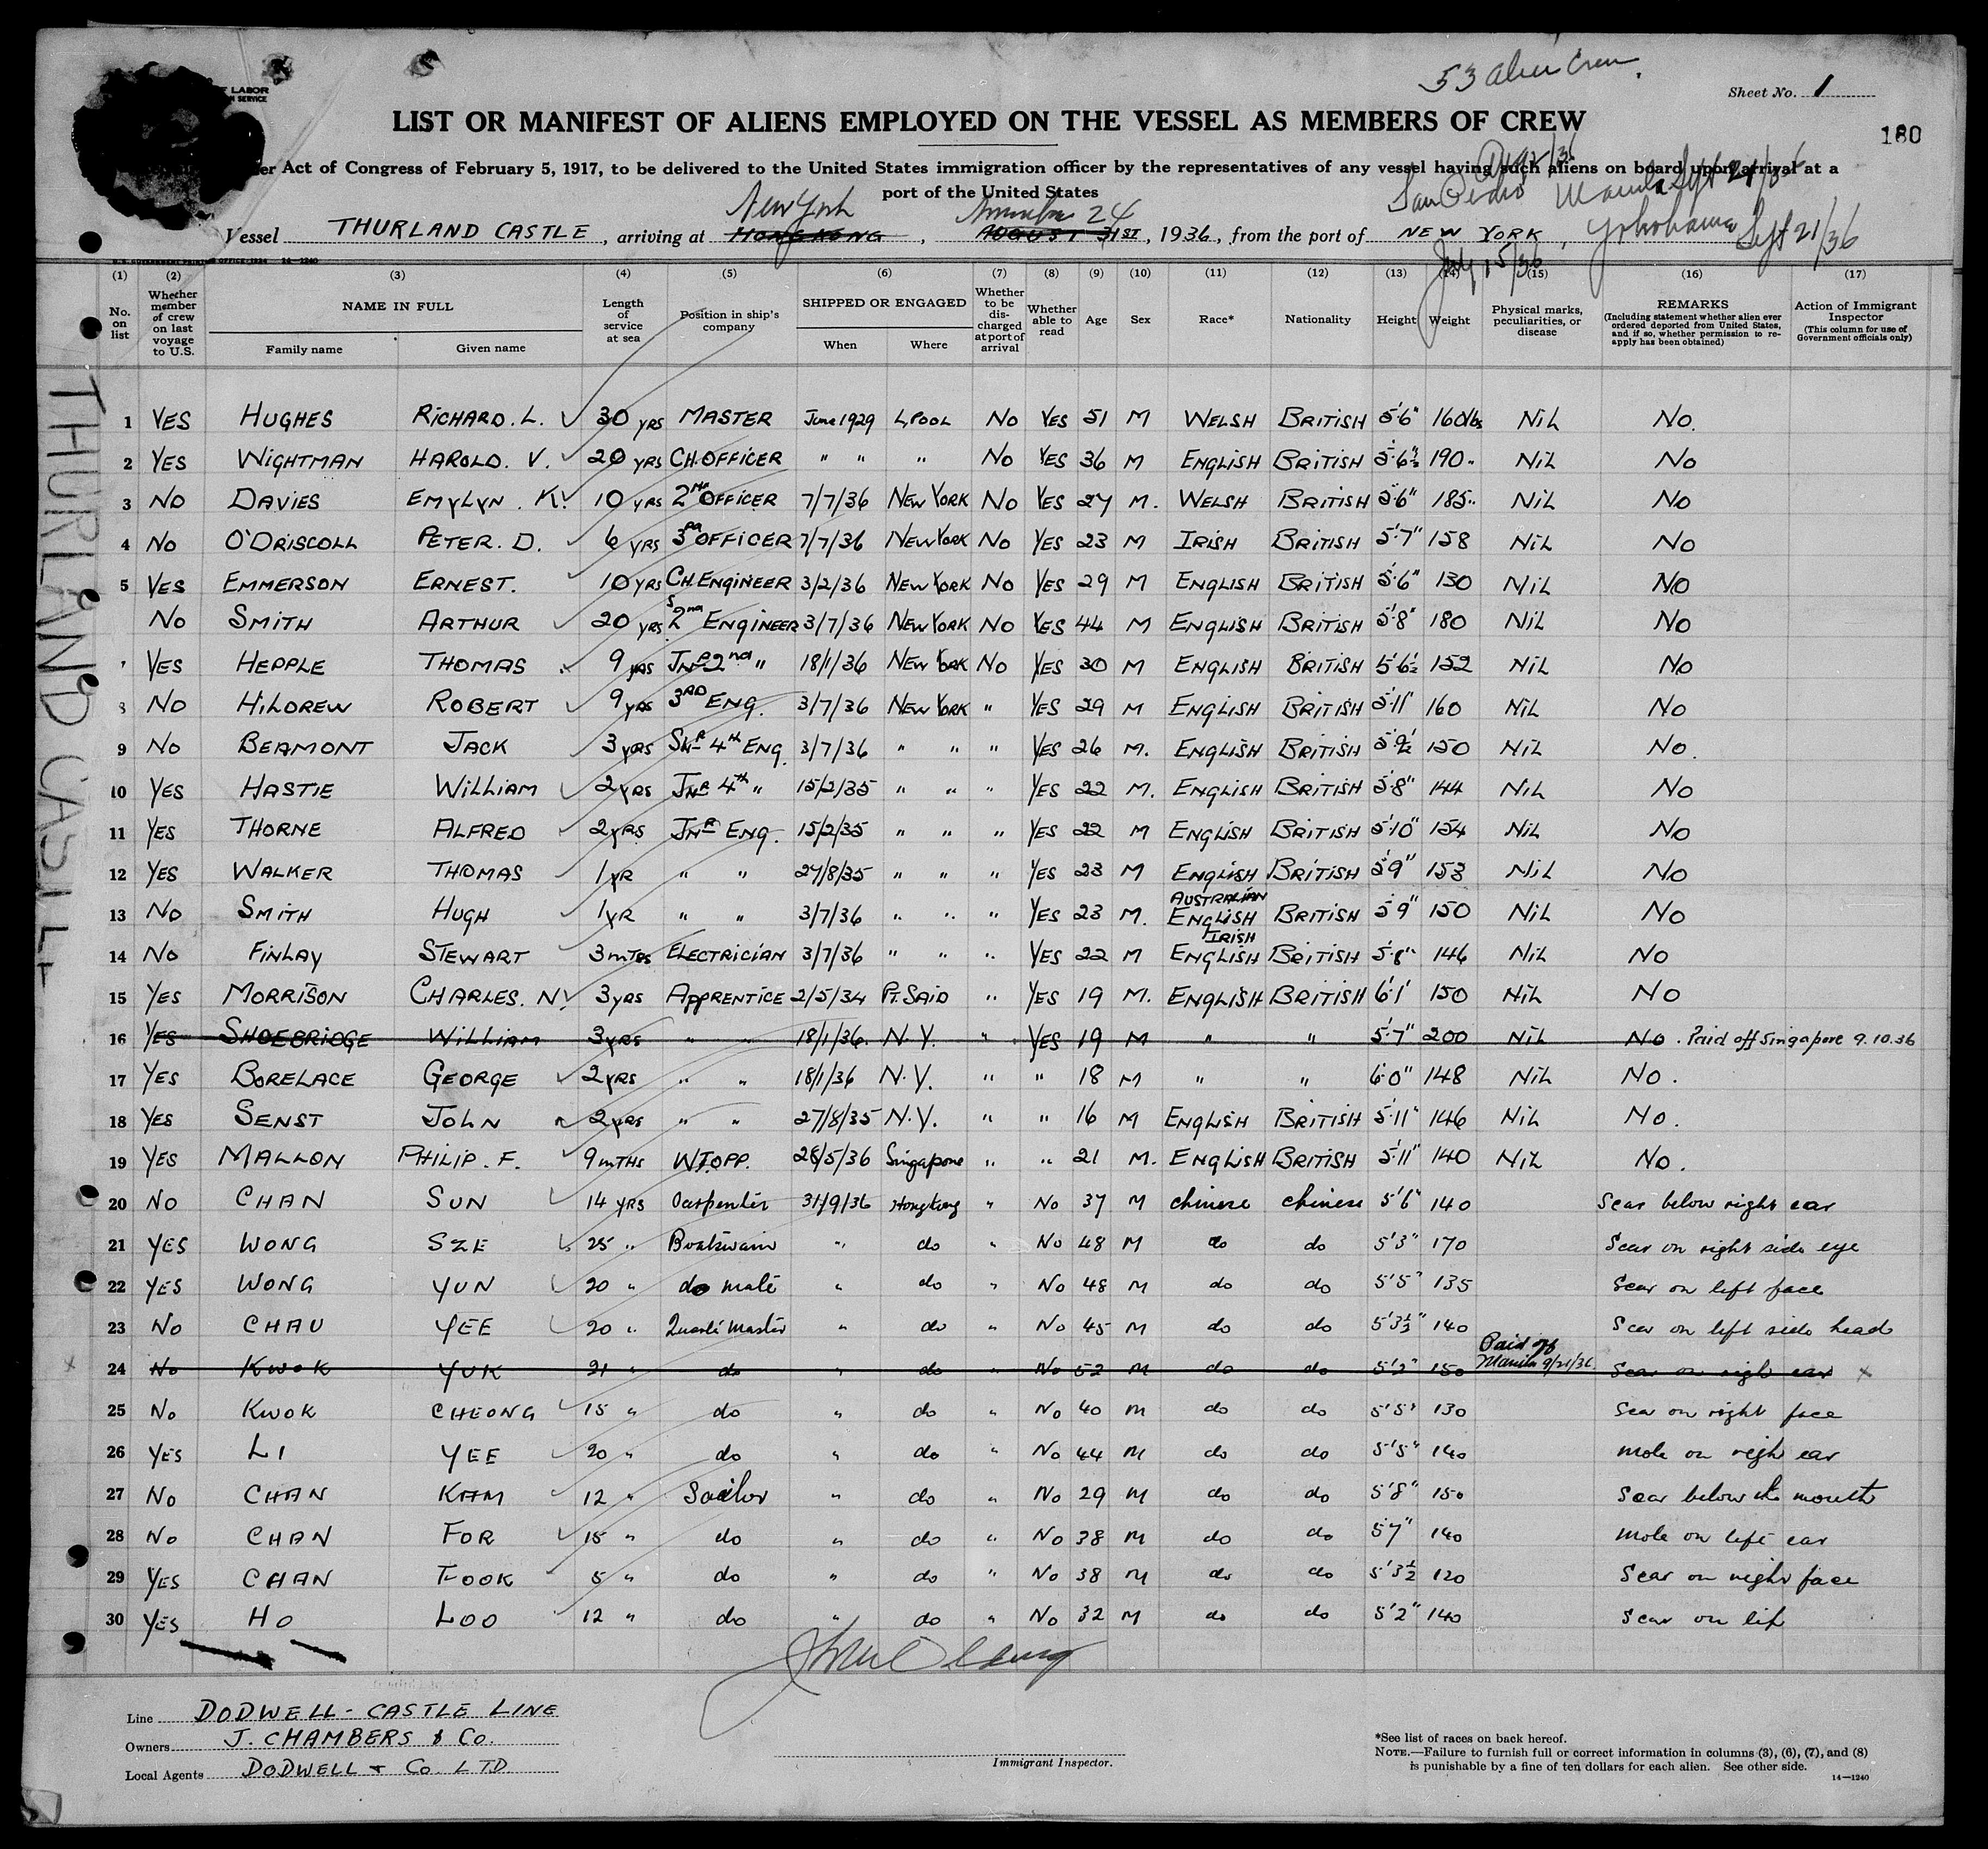 53 Alien Crew.
LABOR
SERVICE
Sheet No. 1
LIST OR MANIFEST OF ALIENS EMPLOYED ON THE VESSEL AS MEMBERS OF CREW
180
er Act of Congress of February 5, 1917, to be delivered to the United States immigration officer by the representatives of any vessel having such aliens on board upon arrival at a
port of the United States
New York 24 San Pedro Manila Sept 21/36
Vessel THURLAND CASTLE, arriving at HONGKONG, AUGUST 31ST, 1936, from the port of NEW YORK, Yokohama Sept 21/36
July 15/36
(1) (2) (3) (4) (5) (6) (7) (8) (9) (10) (11) (12) (13) (14) (15) (16) (17)
No. on list
Whether member of crew on last voyage to U.S.
NAME IN FULL
Family name Given name
Length of service at sea
Position in ship's company
SHIPPED OR ENGAGED
When Where
Whether to be discharged at port of arrival
Whether able to read
Age
Sex
Race*
Nationality
Height
Weight
Physical marks, peculiarities, or disease
REMARKS
(Including statement whether alien ever ordered deported from United States, and if so, whether permission to re-apply has been obtained)
Action of Immigrant Inspector
(This column for use of Government officials only)
THURLAND CASTLE
1 YES HUGHES RICHARD. L. 30 YRS MASTER June 1929 L,POOL NO YES 51 M WELSH BRITISH 5'6" 160lbs NIL NO.
2 YES WIGHTMAN HAROLD. V. 20 YRS CH.OFFICER " " " NO YES 36 M ENGLISH BRITISH 5'6½" 190" NIL NO
3 NO DAVIES EMYLYN. K. 10 YRS 2ND OFFICER 7/7/36 NEW YORK NO YES 27 M. WELSH BRITISH 5'6" 185" NIL NO
4 NO O'DRISCOLL PETER. D. 6 YRS 3RD OFFICER 7/7/36 NEW YORK NO YES 23 M IRISH BRITISH 5'7" 158 NIL NO
5 YES EMMERSON ERNEST. 10 YRS CH.ENGINEER 3/2/36 NEW YORK NO YES 29 M ENGLISH BRITISH 5'6" 130 NIL NO
NO SMITH ARTHUR 20 YRS 2nd ENGINEER 3/7/36 NEW YORK NO YES 44 M ENGLISH BRITISH 5'8" 180 NIL NO
YES HEPPLE THOMAS 9 YRS JNR 2nd " 18/1/36 NEW YORK NO YES 30 M ENGLISH BRITISH 5'6½ 152 NIL NO
8 NO HILDREW ROBERT 9 YRS 3RD ENG. 3/7/36 NEW YORK " YES 29 M ENGLISH BRITISH 5'11" 160 NIL NO
9 NO BEAMONT JACK 3 YRS SNR 4th ENG. 3/7/36 " " " YES 26 M. ENGLISH BRITISH 5'9½ 150 NIL NO.
10 YES HASTIE WILLIAM 2 YRS JNR 4th " 15/2/35 " " " YES 22 M. ENGLISH BRITISH 5'8" 144 NIL NO
11 YES THORNE ALFRED 2 YRS JNR ENG. 15/2/35 " " " YES 22 M ENGLISH BRITISH 5'10" 154 NIL NO
12 YES WALKER THOMAS 1 YR " " 27/8/35 " " " YES 23 M ENGLISH BRITISH 5'9" 153 NIL NO
AUSTRALIAN
13 NO SMITH HUGH 1 YR " " 3/7/36 " " " YES 23 M. ENGLISH BRITISH 5'9" 150 NIL NO
IRISH
14 NO FINLAY STEWART 3 MTHS ELECTRICIAN 3/7/36 " " " YES 22 M ENGLISH BRITISH 5'8" 146 NIL NO
15 YES MORRISON CHARLES. N. 3 YRS APPRENTICE 2/5/34 PT.SAID " YES 19 M. ENGLISH BRITISH 6'1" 150 NIL NO
16 YES SHOEBRIDGE WILLIAM 3 YRS " " 18/1/36. N.Y. " YES 19 M " " 5'7" 200 NIL NO. Paid off Singapore 9.10.36
17 YES BORELACE GEORGE 2 YRS " " 18/1/36 N.Y. " " 18 M " " 6'0" 148 NIL NO.
18 YES SENST JOHN 2 YRS " " 27/8/35 N.Y. " " 16 M ENGLISH BRITISH 5'11" 146 NIL NO.
19 YES MALLON PHILIP. F. 9 MTHS W/T.OPP. 26/5/36 Singapore " " 21 M. ENGLISH BRITISH 5'11" 140 NIL NO.
20 NO CHAN SUN 14 YRS Carpenter 31/9/36 Hongkong " No 37 M chinese chinese 5'6" 140 Scar below right ear
21 YES WONG SZE 25 " Boatswain " do " No 48 M do do 5'3" 170 Scar on right side eye
22 YES WONG YUN 20 " do mate " do " No 48 M do do 5'5" 135 Scar on left face
23 NO CHAU YEE 20 " Quarter Master " do " No 45 M do do 5'3½" 140 Scar on left side head
Paid off
24 No KWOK YUK 21 " do " do " No 52 M do do 5'2" 150 Manila 9/21/36 Scar on righ ear x
25 No KWOK CHEONG 15 " do " do " No 40 M do do 5'5" 130 Scar on right face
26 YES LI YEE 20 " do " do " No 44 M do do 5'5" 140 mole on righ ear
27 No CHAN KAM 12 " Sailor " do " No 29 M do do 5'8" 150 Scar below the mouth
28 No CHAN FOR 15 " do " do " No 38 M do do 5'7" 140 mole on left ear
29 YES CHAN FOOK 5 " do " do " No 38 M do do 5'3½ 120 Scar on right face
30 YES HO LOO 12 " do " do " No 32 M do do 5'2" 140 Scar on lip
Line DODWELL - CASTLE LINE
Owners J. CHAMBERS & Co.
Local Agents DODWELL & Co. LTD.
Immigrant Inspector.
*See list of races on back hereof.
NOTE.—Failure to furnish full or correct information in columns (3), (6), (7), and (8)
is punishable by a fine of ten dollars for each alien. See other side.
14—1240